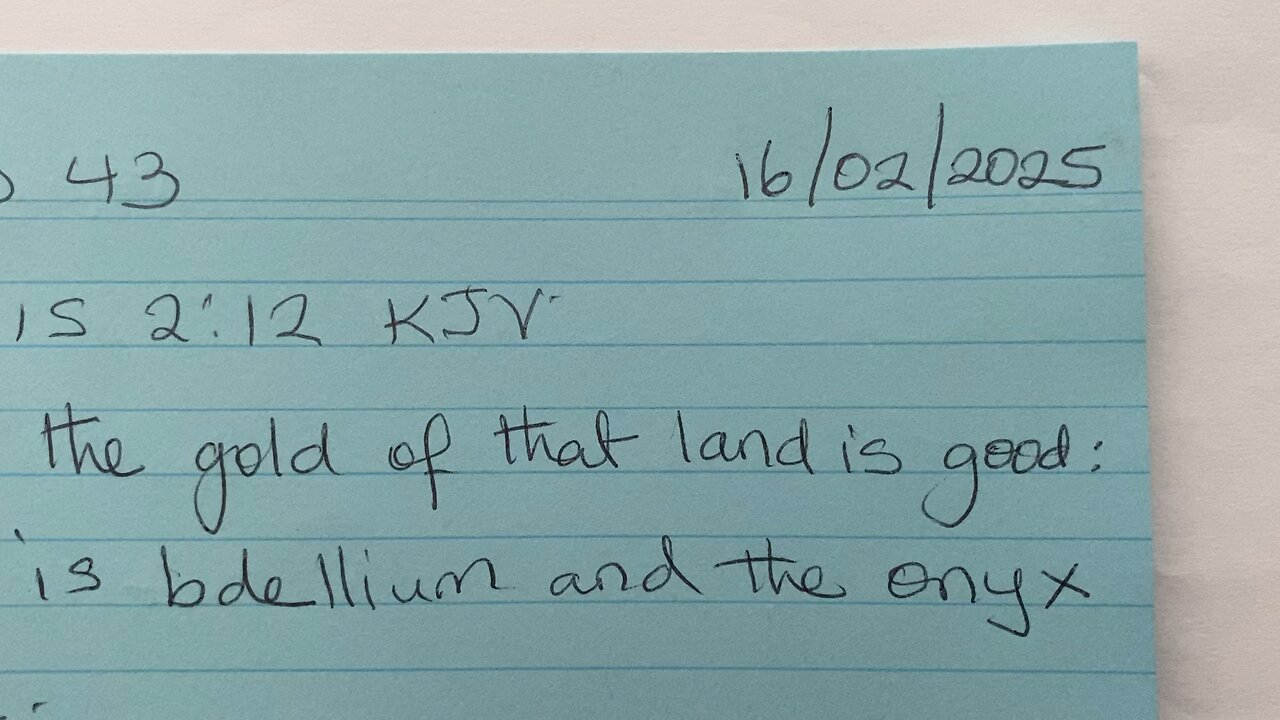 43 16/02/2025
is 2:12 KJV
the gold of that land is good:
is bdellium and the onyx